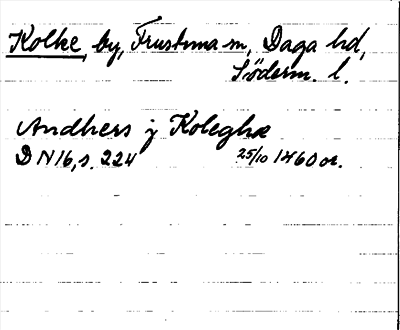 Kolke, by, Frustuna sn, Daga hd,
Söderm. l.
Andhers j Koleghæ
DN 16, s. 224 25/10 1460 or.